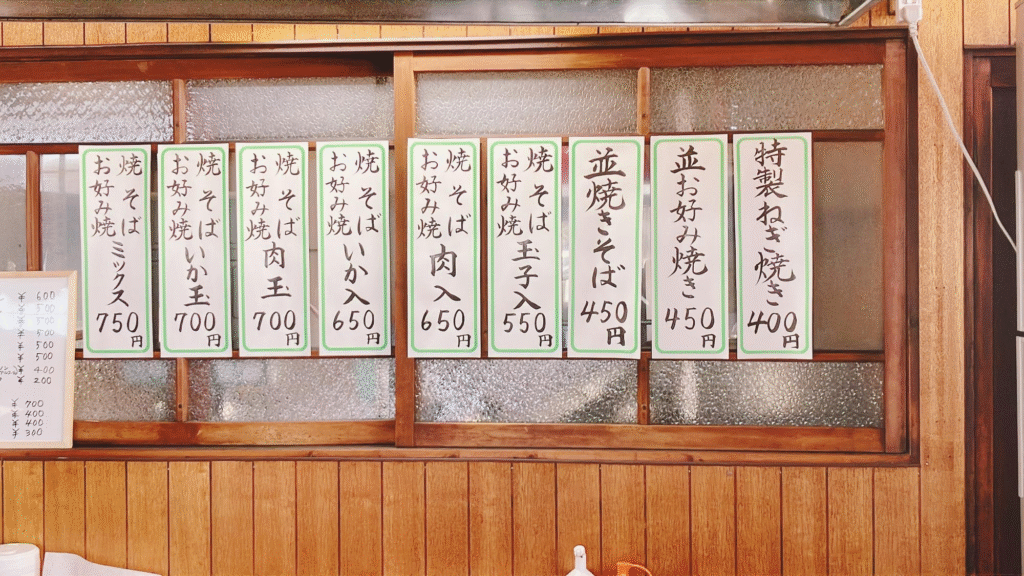 特製ねぎ焼き
400円
並お好み焼き
450円
並焼きそば
450円
焼そば
お好み焼
玉子入
550円
焼そば
お好み焼
肉入
650円
焼そば
お好み焼
いか入
650円
焼そば
お好み焼
肉玉
700円
焼そば
お好み焼
いか玉
700円
焼そば
お好み焼
ミックス
750円
600
500
500
500
500
500
400
200
700
400
400
300